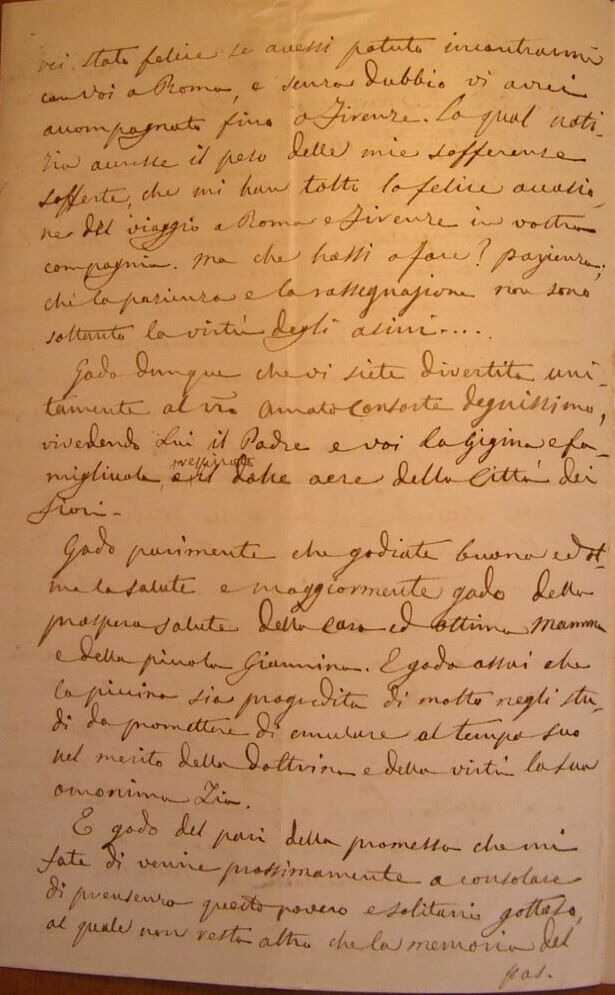 rei stato felice se avessi potuto incontrarmi
con voi a Roma, e senza dubbio vi avrei
accompagnato fino a Firenze. La qual noti-
zia accresce il peso delle mie sofferenze
sofferte, che mi han tolto la felice occasio-
ne del viaggio a Roma e Firenze in vostra
compagnia. Ma che hassi a fare? pazienza;
chè la pazienza e la rassegnazione non sono
soltanto la virtù degli asini....
Godo dunque che vi siete divertita uni-
tamente al vro amato Consorte degnissimo,
rivedendo Lui il Padre e voi la Gigina e fa-
migliuola, e
il dolce aere della Città dei
fiori.-
Godo parimente che godiate buona ed ot-
tima la salute e maggiormente godo della
prospera salute della cara ed ottima Mamma
e della piccola Giannina. E godo assai che
la piccina sia progredita di molto negli stu-
di da promettere di emulare al tempo suo
nel merito della dottrina e della virtù la sua
omonima Zia.
E godo del pari della promessa che mi
fate di venire prossimamente a consolare
di prensenza questo povero e solitario gottoso,
al quale non resta altro che la memoria del
pas.